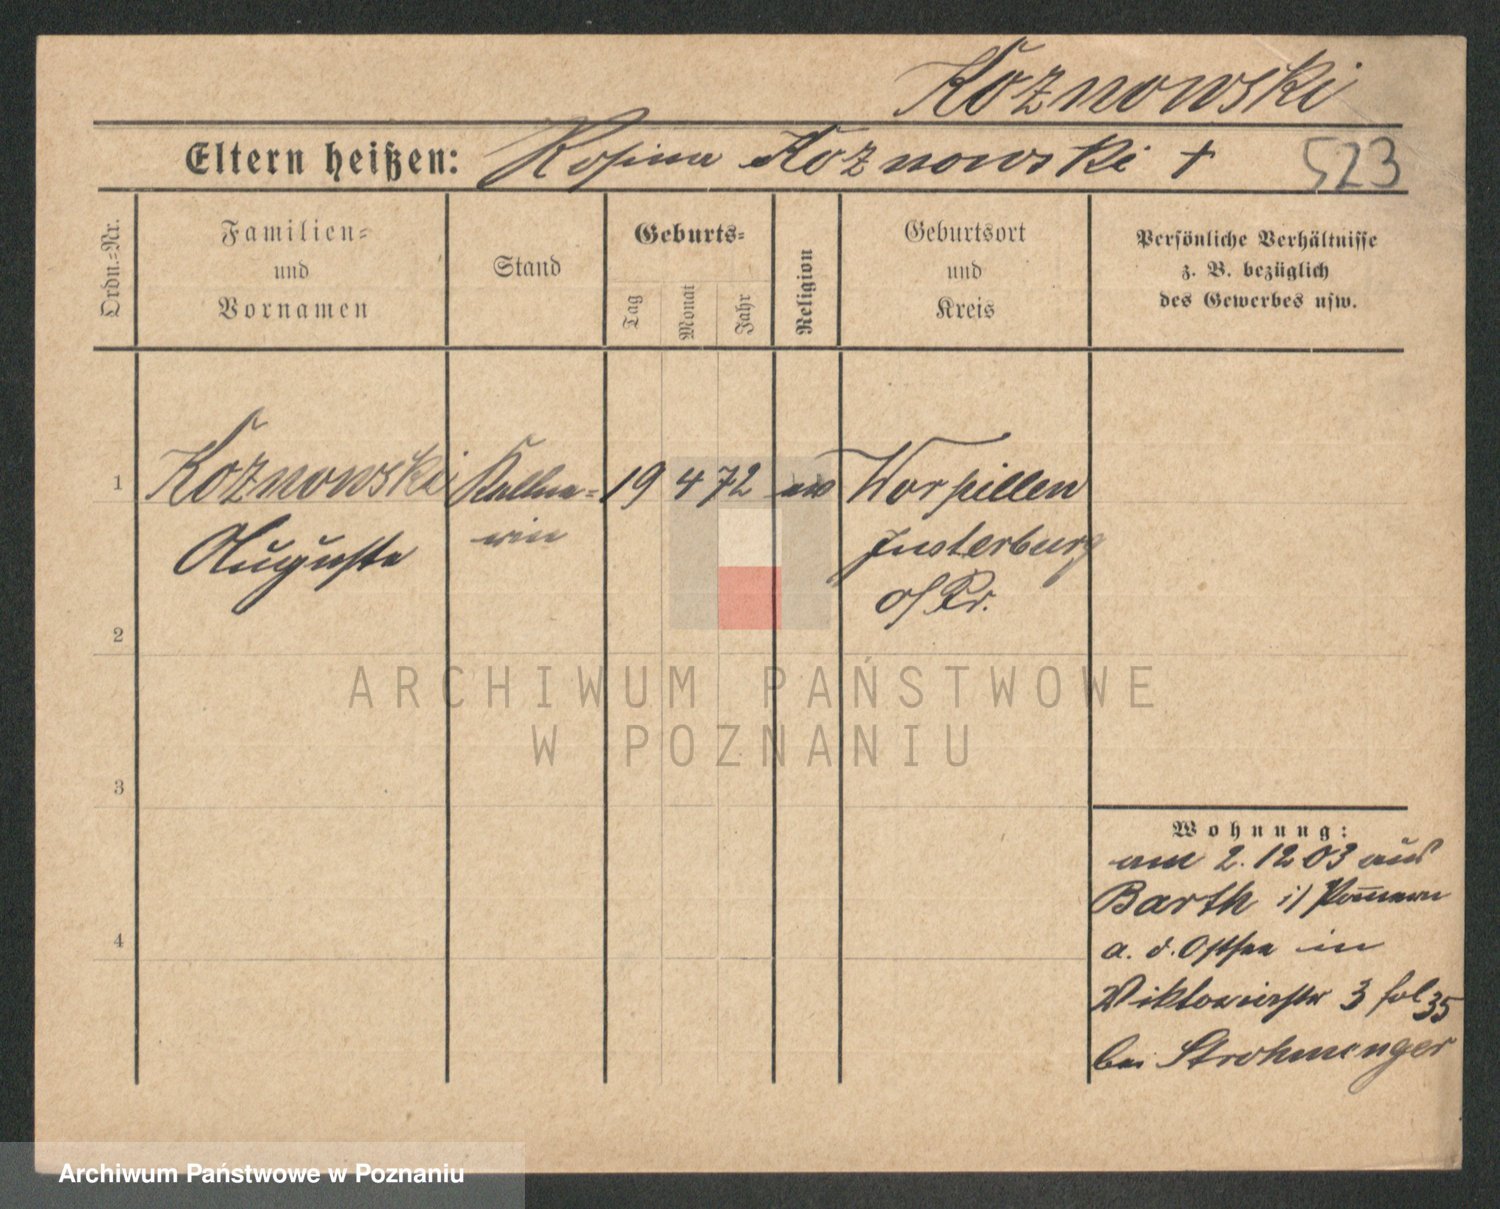 Koznowski
Eltern heißen: Rosina Koznowski +
523
Ordn.-Nr.
Familien-
und
Vornamen
Stand
Geburts-
Tag
Monat
Jahr
Religion
Geburtsort
und
Kreis
Persönliche Verhältnisse
z. B. bezüglich
des Gewerbes usw.
1
Koznowski
Auguste
Kellne-
rin
19 4 72
ev
Worpillen
Insterburg
o/Pr.
2
3
4
ARCHIWUM PAŃSTWOWE
W POZNANIU
Wohnung:
am 2.12 03 aus
Barth i/ Pom̄ern
a. d. Ostsee in
Viktoriastr 3 fol 35
bei Strohmenger
Archiwum Państwowe w Poznaniu